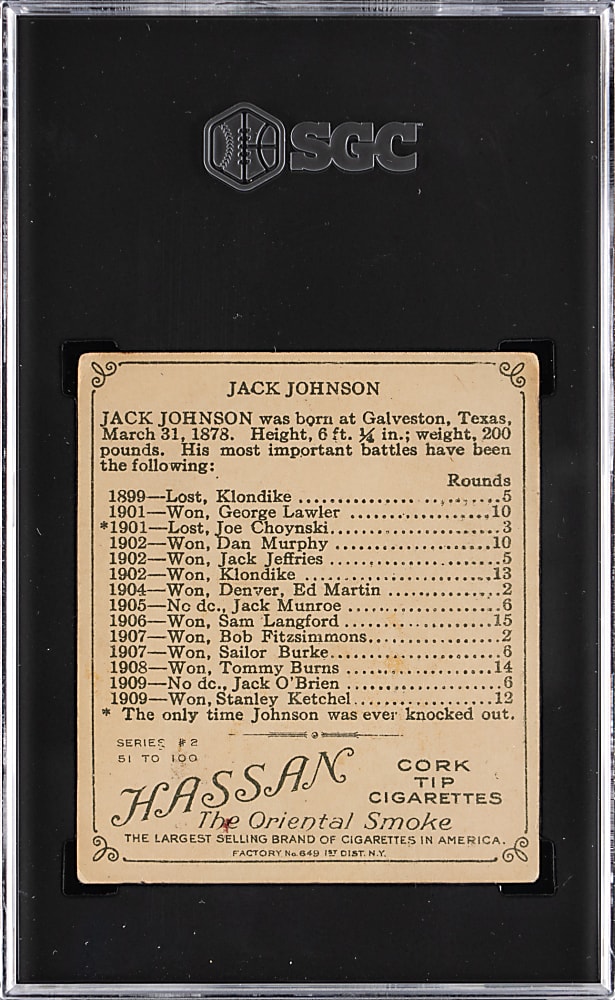 SGC
JACK JOHNSON
JACK JOHNSON was born at Galveston, Texas,
March 31, 1878. Height, 6 ft. ¼ in.; weight, 200
pounds. His most important battles have been
the following:
Rounds
1899—Lost, Klondike ........................5
1901—Won, George Lawler ..................10
*1901—Lost, Joe Choynski....................3
1902—Won, Dan Murphy ...................10
1902—Won, Jack Jeffries ....................5
1902—Won, Klondike ......................13
1904—Won, Denver, Ed Martin .............2
1905—No dc., Jack Munroe .................6
1906—Won, Sam Langford .................15
1907—Won, Bob Fitzsimmons...............2
1907—Won, Sailor Burke....................6
1908—Won, Tommy Burns .................14
1909—No dc., Jack O'Brien .................6
1909—Won, Stanley Ketchel................12
* The only time Johnson was ever knocked out.
SERIES #2
51 TO 100
HASSAN
CORK
TIP
CIGARETTES
The Oriental Smoke
THE LARGEST SELLING BRAND OF CIGARETTES IN AMERICA.
FACTORY No. 649 1ST DIST. N.Y.